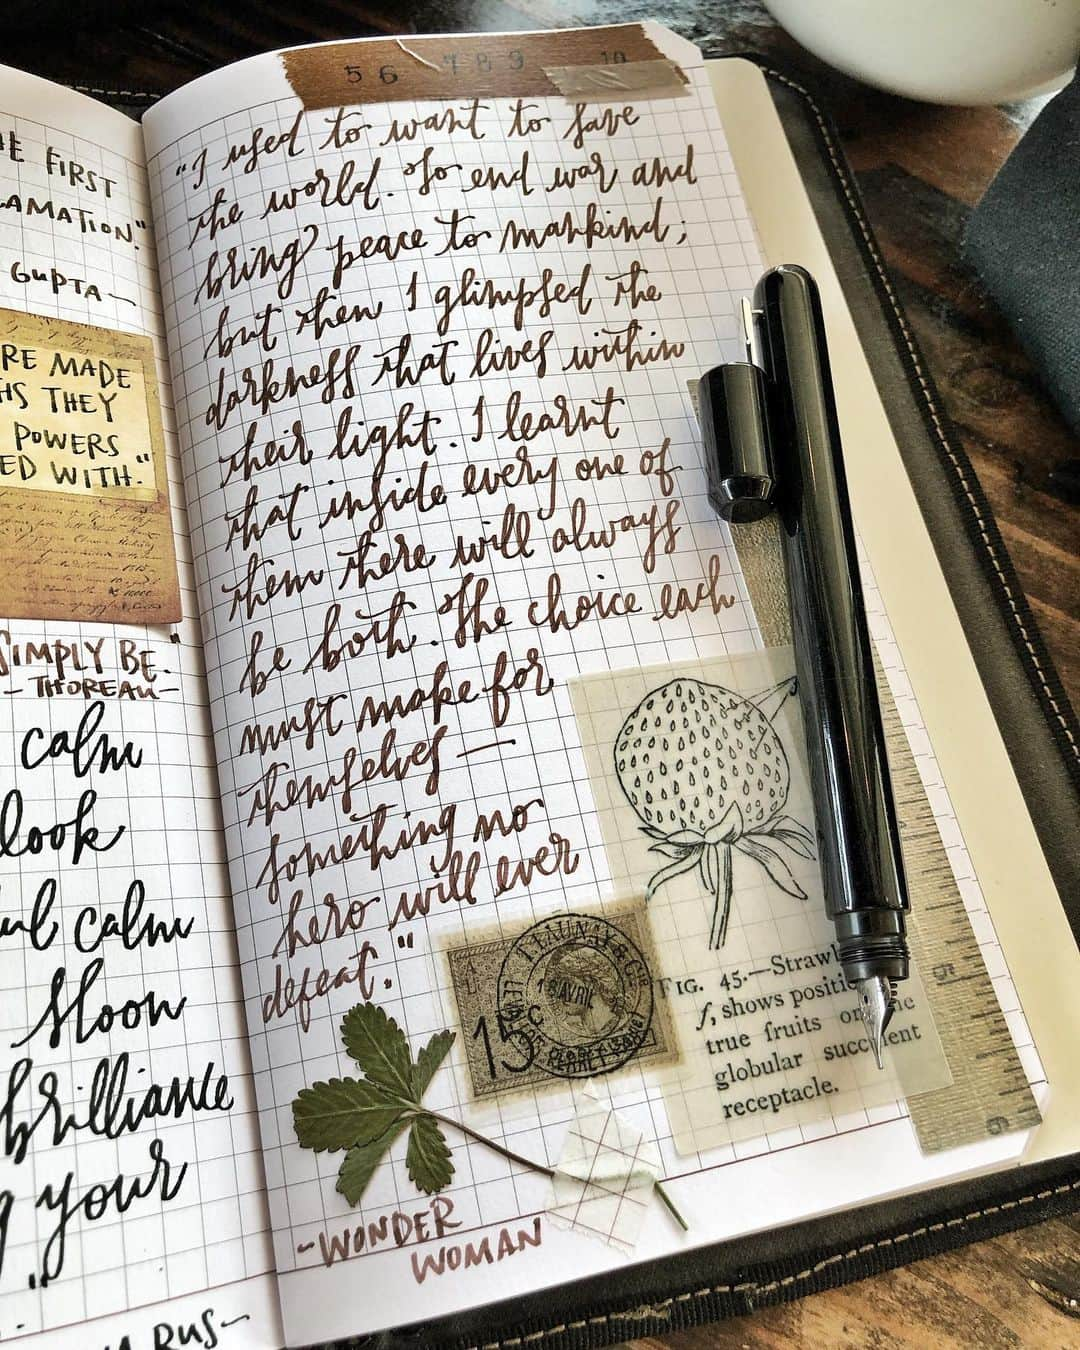 HE FIRST
LAMATION."
GUPTA—
RE MADE
HS THEY
POWERS
ED WITH."
SIMPLY BE."
—THOREAU—
calm
look
ul calm
Moon
brilliance
g your
RUS—
5 6 7 8 9 10
"I used to want to save
the world. To end war and
bring peace to mankind;
but then I glimpsed the
darkness that lives within
their light. I learnt
that inside every one of
them there will always
be both. The choice each
must make for
themselves —
something no
hero will ever
defeat."
-WONDER
WOMAN
15c
FIG. 45.—Strawb
f, shows positi
true fruits on
globular succulent
receptacle.
5
6